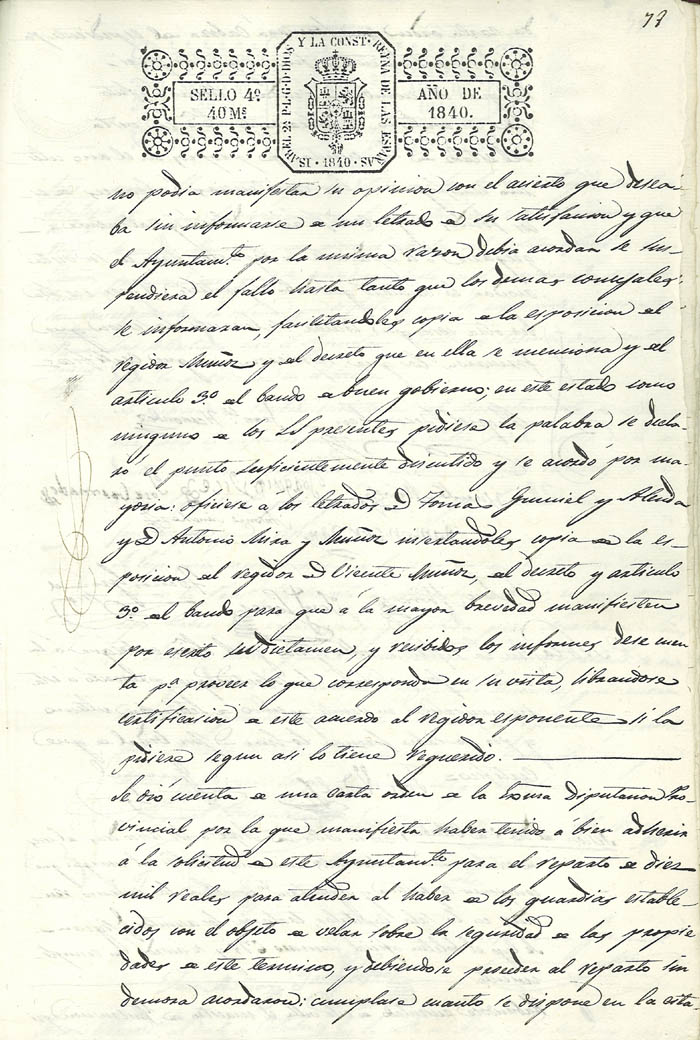 73
ISABEL 2ª P.L.G.D.DIOS Y LA CONST. REYNA DE LAS ESPAÑAS · 1840 ·
SELLO 4º
40 Mˢ
AÑO DE
1840.
no podia manifestar su opinion con el acierto que desea-
ba sin informarse de un letrado de su satisfacion y que
el Ayuntamᵗᵒ por la misma razon debia acordar se sus-
pendiera el fallo hasta tanto que los demas concejales
se informaran, facilitandoles copia de la esposicion del
regidor Muñoz y del decreto que en ella se menciona y del
articulo 3º del bando de buen gobierno; en este estado como
ninguno de los SS presentes pidiese la palabra se decla-
ró el punto suficientemente discutido y se acordó por ma-
yoria: oficiese á los letrados D Tomas Gumiel y Alenda
y D Antonio Mira y Muñoz insertandoles copia de la es-
posicion del regidor D Vicente Muñoz, del decreto y articulo
3º del bando para que á la mayor brevedad manifiesten
por escrito su dictamen, y recibidos los informes dese cuen
ta pª proveer lo que corresponda en su vista, librandose
certificacion de este acuerdo al regidor esponente si la
pidiere segun asi lo tiene requerido.
Se dió cuenta de una carta orden de la Exma Diputacion Pro
vincial por la que manifiesta haber tenido a bien adherir
á la solicitud de este Ayuntamᵗᵒ para el reparto de diez
mil reales para atender al haber de los guardias estable-
cidos con el objeto de velar sobre la seguridad de las propie
dades de este termino, y debiendose proceder al reparto sin
demora acordaron: cumplase cuanto se dispone en la cita-